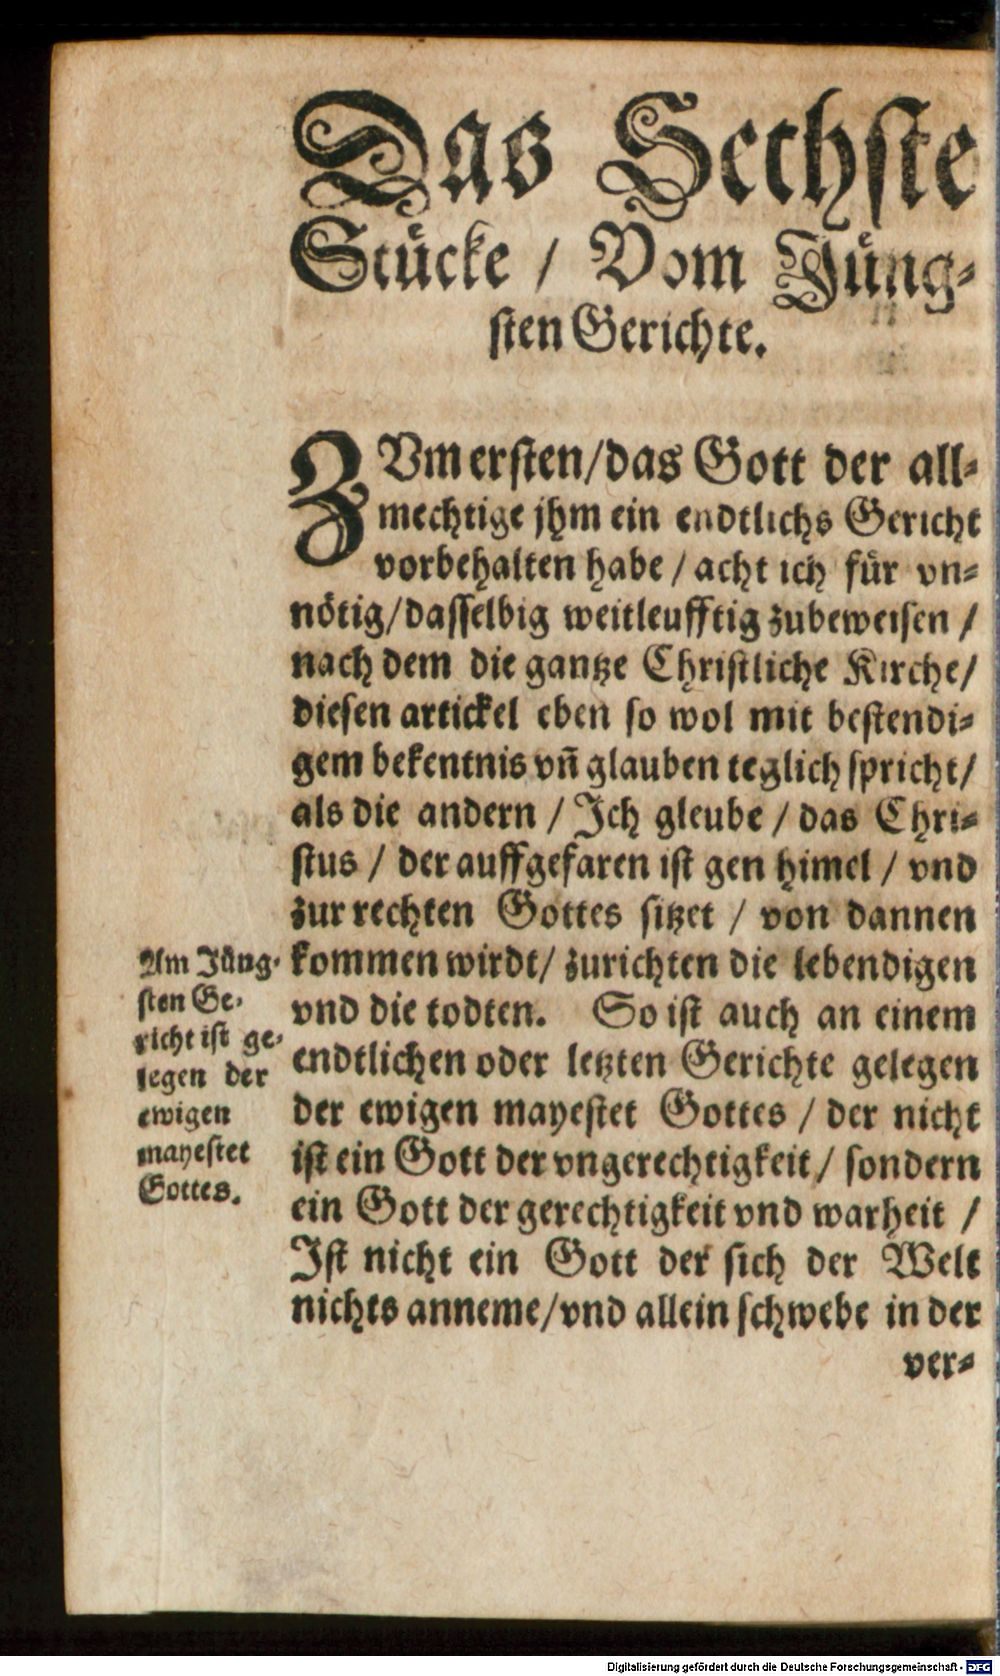 Das Sechste
Stücke / Vom Jüng-
sten Gerichte.
ZVm ersten/das Gott der all-
mechtige jhm ein endtlichs Gericht
vorbehalten habe / acht ich für vn-
nötig/dasselbig weitleufftig zubeweisen /
nach dem die gantze Christliche Kirche/
diesen artickel eben so wol mit bestendi-
gem bekentnis vn̄ glauben teglich spricht/
als die andern / Ich gleube / das Chri-
stus / der auffgefaren ist gen himel / vnd
zur rechten Gottes sitzet / von dannen
kommen wirdt/ zurichten die lebendigen
vnd die todten. So ist auch an einem
endtlichen oder letzten Gerichte gelegen
der ewigen mayestet Gottes / der nicht
ist ein Gott der vngerechtigkeit / sondern
ein Gott der gerechtigkeit vnd warheit /
Ist nicht ein Gott der sich der Welt
nichts anneme/vnd allein schwebe in der
ver-
Am Jüng-
sten Ge-
richt ist ge-
legen der
ewigen
mayestet
Gottes.
Digitalisierung gefördert durch die Deutsche Forschungsgemeinschaft - DFG